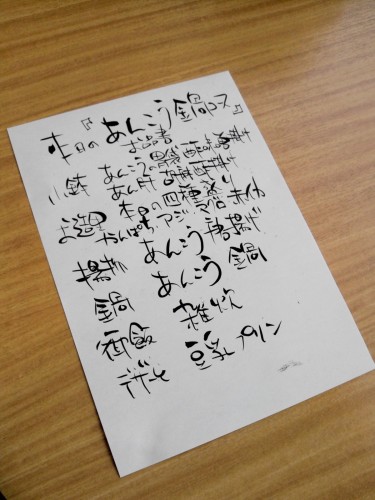 本日の『あんこう鍋コース』
お品書
小鉢 あんこう
あん肝
お造里 本日の四種盛り
かんぱち、アジ、赤イカ
揚げ あんこう 唐揚げ
鍋 あんこう 鍋
御飯 雑炊
デザート 豆乳プリン